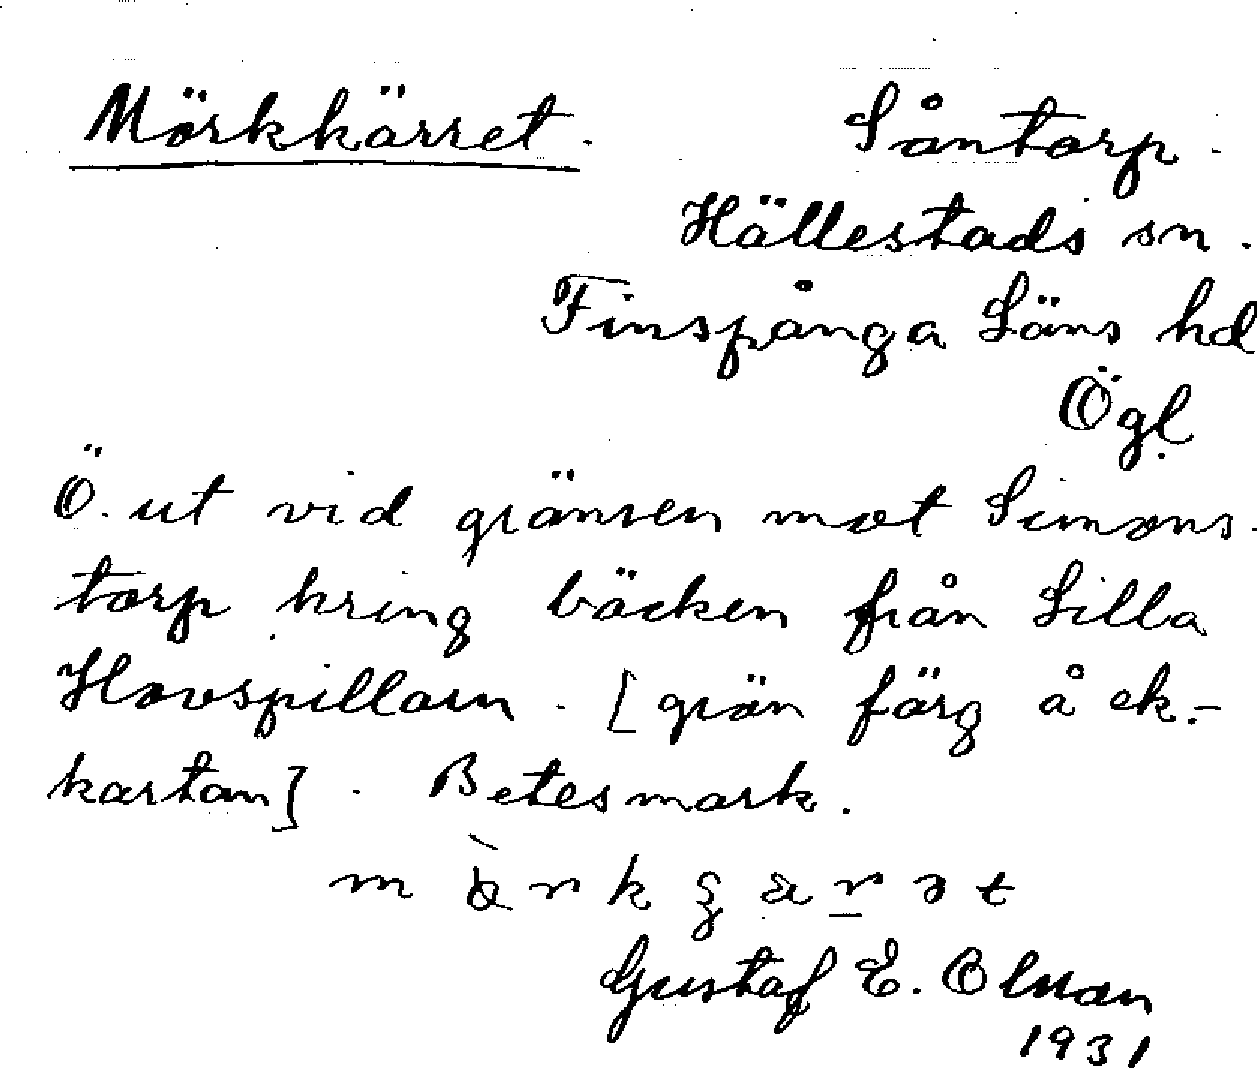 Mörkkärret. Såntorp.
Hällestads sn.
Finspånga Läns hd
Ögl.
Ö. ut vid gränsen mot Simons-
torp kring bäcken från Lilla
Hovspillarn. [grön färg å ek.-
kartan]. Betesmark.
Gustaf E. Olsson
1931